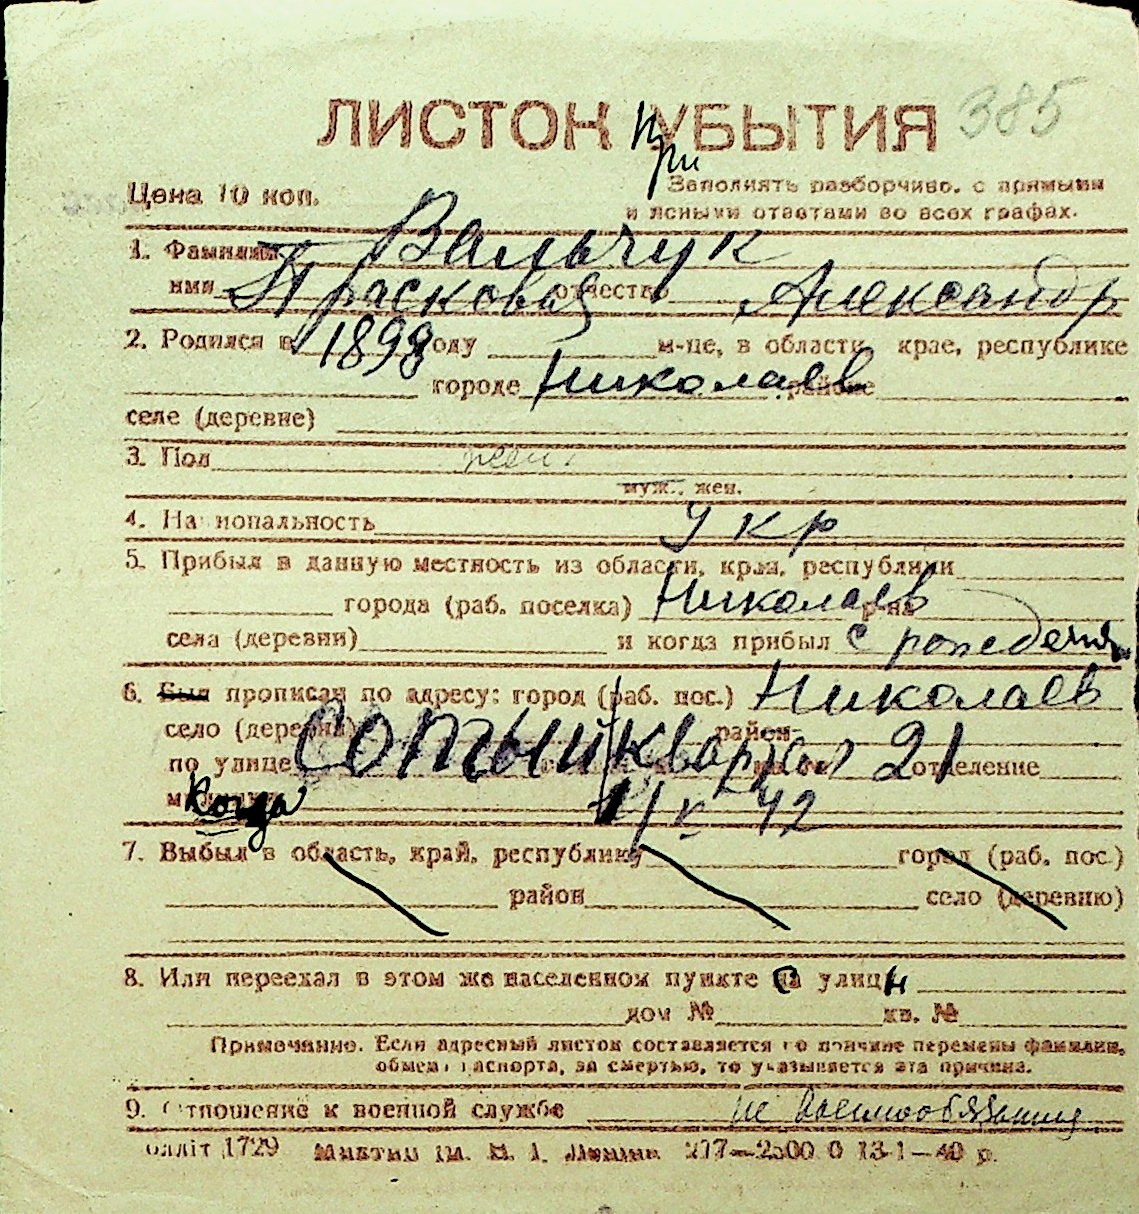 ЛИСТОК УБЫТИЯ 385
при
Цена 10 коп. Заполнять разборчиво, с прямыми
и ясными ответами во всех графах.
1. Фамилия Вальчук
имя Прасковая отчество Александр
2. Родился в 1898 году м-це, в области, крае, республике
городе Николаев районе
селе (деревне)
3. Пол жен.
муж., жен.
4. Национальность укр
5. Прибыл в данную местность из области, края, республики
города (раб. поселка) Николаев р-на
села (деревни) и когда прибыл с рождения
6. Был прописан по адресу: город (раб. пос.) Николаев
село (деревня) район
по улице Сотый квартал 21 отделение
милиции Когда 42
7. Выбыл в область, край, республику город (раб. пос.)
район село (деревню)
8. Или переехал в этом же населенном пункте с улицы
дом № кв. №
Примечание. Если адресный листок составляется по причине перемены фамилии,
обмена паспорта, за смертью, то указывается эта причина.
9. Отношение к военной службе не военнообязанная
облліт 1729 277—2500 0 13-1—40 р.